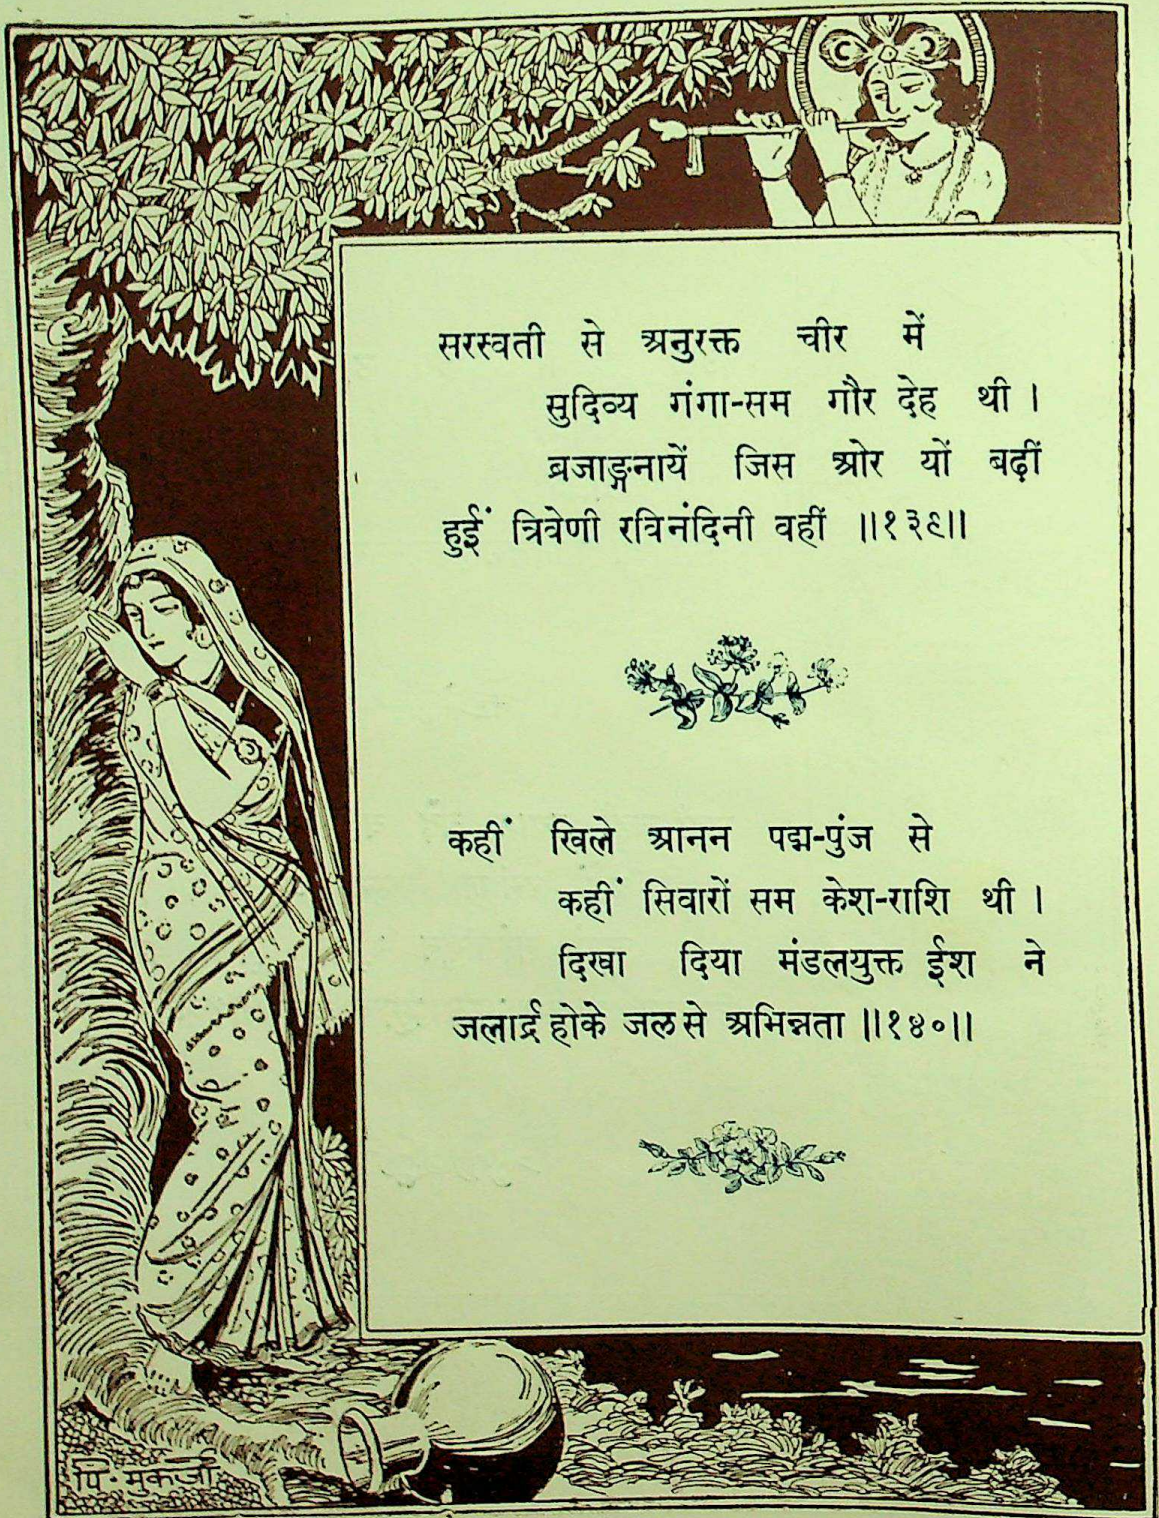 सरस्वती से अनुरक्त चीर में
सुदिव्य गंगा-सम गौर देह थी ।
ब्रजाङ्गनायें जिस ओर यों बढ़ीं
हुईं त्रिवेणी रविनंदिनी वहीं ॥१३९॥
कहीं खिले आनन पद्म-पुंज से
कहीं सिवारों सम केश-राशि थी ।
दिखा दिया मंडलयुक्त ईश ने
जलार्द्र होके जल से अभिन्नता ॥१४०॥
पि. मुकर्जी